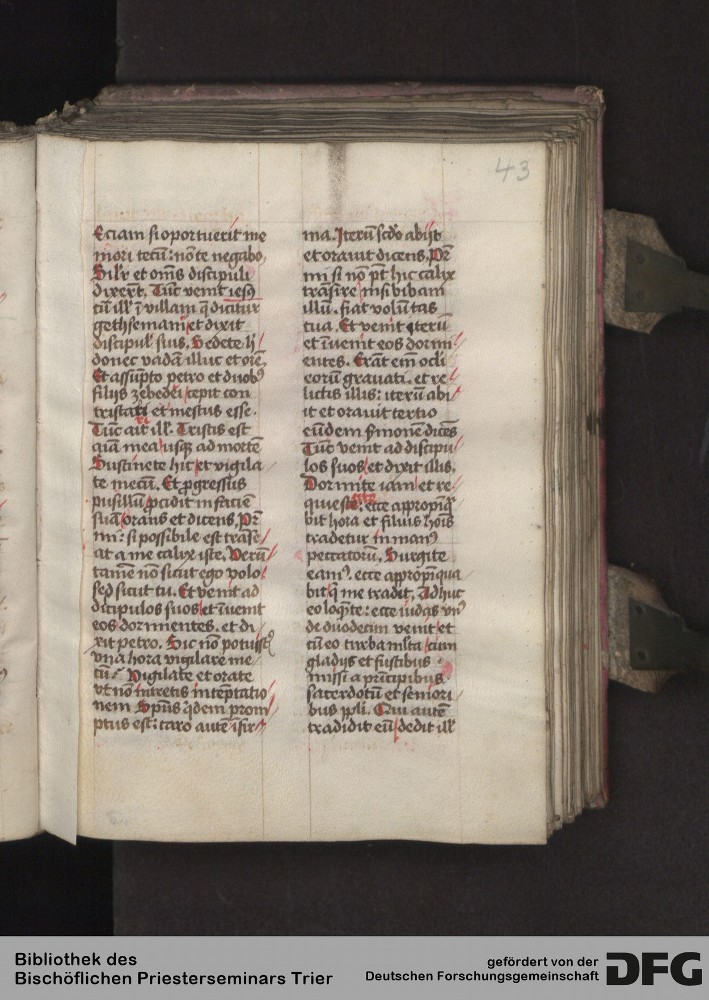 43
Eciam si oportuerit me
mori tecū: nō te negabo,
Silr̄ et om̄s discipuli
dixerūt. Tūc venit iesꝯ
cū ill' ī villam q̄ dicitur
gethsemani et dixit
discipul' suis. Sedete h̄
donec vadā illuc et orē,
Et assūpto petro et duobꝯ
filijs zebedei cepit con
tristari et mestus esse.
Tūc ait ill'. Tristis est
aīa mea usqꝫ ad mortē
Sustinete hic et vigila
te mecū. Et ꝓgressus
pusillū ꝓcidit in faciē
suā orans et dicens, Pr̄
mi: si possibile est trāse
at a me calix iste, Verū
tamē nō sicut ego volo
sed sicut tu. Et venit ad
dicipulos suos et īuenit
eos dormientes. et di
xit petro. Sic nō potuistꝭ
vna hora vigilare me
cū. Vigilate et orate
vt nō intretis in tēptatio
nem Spūs qdem prom
ptus est: caro autē ifir
ma. Iterū scdo abijt
et orauit dicens, Pr̄
mi si nō pt̄ hic calix
trāsire nisi bibam
illū. fiat volūtas
tua. Et venit iterū
et īuenit eos dormi
entes. Erāt em̄ ocli
eorū grauati. et re
lictis illis: iterū abi
it et orauit tertio
eūdem sr̄monē dicēs
Tūc venit ad discipu
los suos et dixit illis.
Dormite iam et re
quiescite: ecce appropīq̄
bit hora et filius hoīs
tradetur in manꝯ
peccatorū, Surgite
eamꝯ. ecce appropīqua
bit q̄ me tradit, Adhuc
eo loq̄te: ecce iudas vnꝯ
de duodecim venit et
cū eo turba mlta cum
gladijs et fustibus
missi a pricipibus
sacerdotū et seniori
bus ppli. Qui autē
tradidit eū dedit ill'
Bibliothek des
Bischöflichen Priesterseminars Trier
gefördert von der
Deutschen Forschungsgemeinschaft
DFG